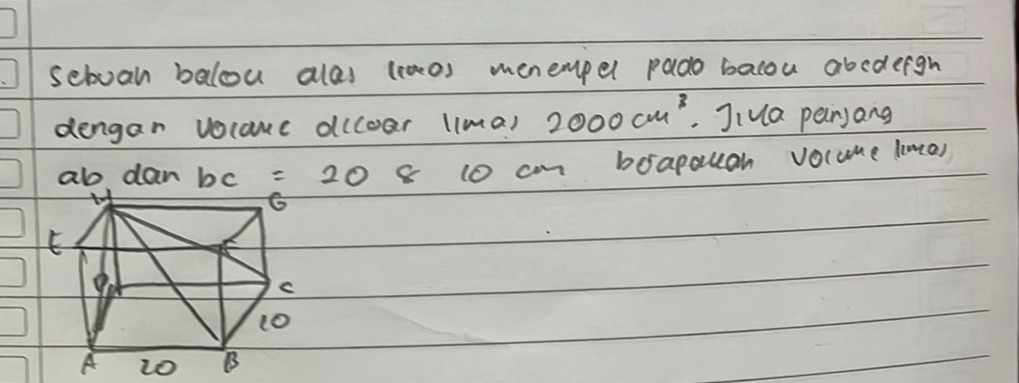 Sebuah balou alas limas menempel pada balou abcdefgh
dengan volume diluar limas 2000 cm³. Jika panjang
ab dan bc = 20 & 10 cm berapakah volume limas
H G
E F
D C
10
A 20 B